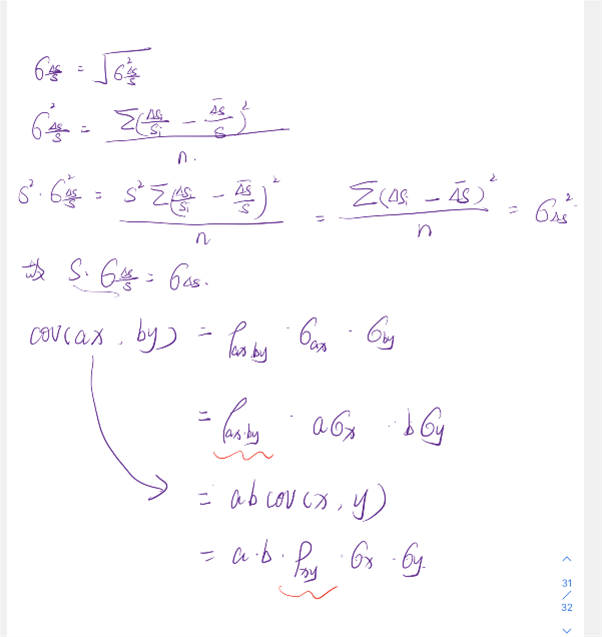 σ_{ΔS/S} = √(σ²_{ΔS/S})
σ²_{ΔS/S} = Σ(ΔSᵢ/Sᵢ − \overline{ΔS}/S)² / n.
S²·σ²_{ΔS/S} = S² Σ(ΔSᵢ/Sᵢ − \overline{ΔS}/S)² / n = Σ(ΔSᵢ − \overline{ΔS})² / n = σ²_{ΔS}
故 S·σ_{ΔS/S} = σ_{ΔS}.
cov(ax, by) = ρ_{ax·by} · σ_{ax} · σ_{by}
= ρ_{ax·by} · aσ_x · bσ_y
= ab cov(x, y)
= a·b·ρ_{xy} · σ_x · σ_y.
31
/
32